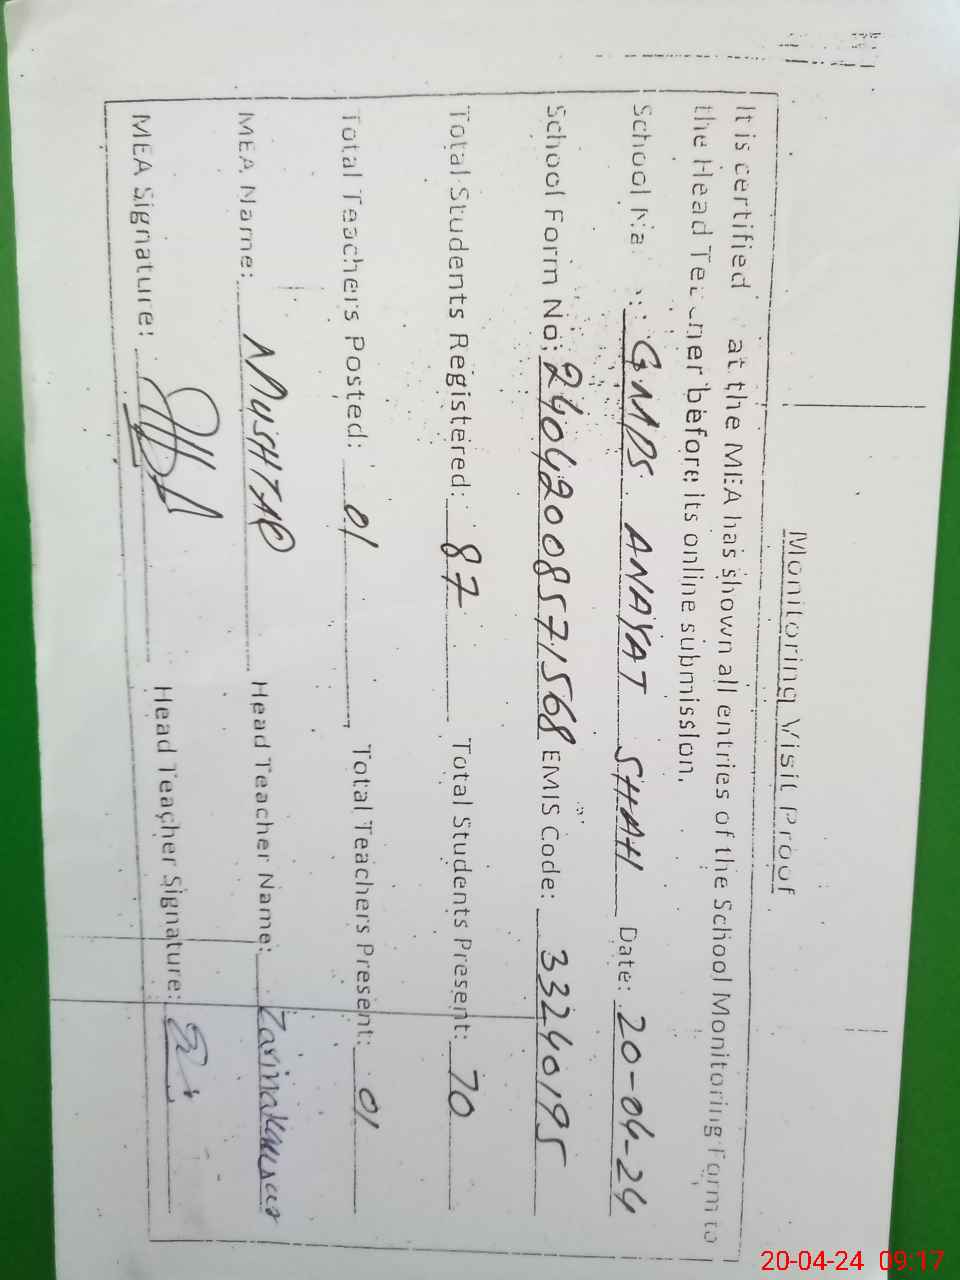 Monitoring Visit Proof
It is certified at the MEA has shown all entries of the School Monitoring Form to
the Head Teacher before its online submission.
School Na : GMPS ANAYAT SHAH Date: 20-04-24
School Form No: 24042008571568 EMIS Code: 33240195
Total Students Registered: 87 Total Students Present: 70
Total Teachers Posted: 01 Total Teachers Present: 01
MEA Name: MUSHTAQ Head Teacher Name: Zarinakausar
MEA Signature: Head Teacher Signature:
20-04-24 09:17